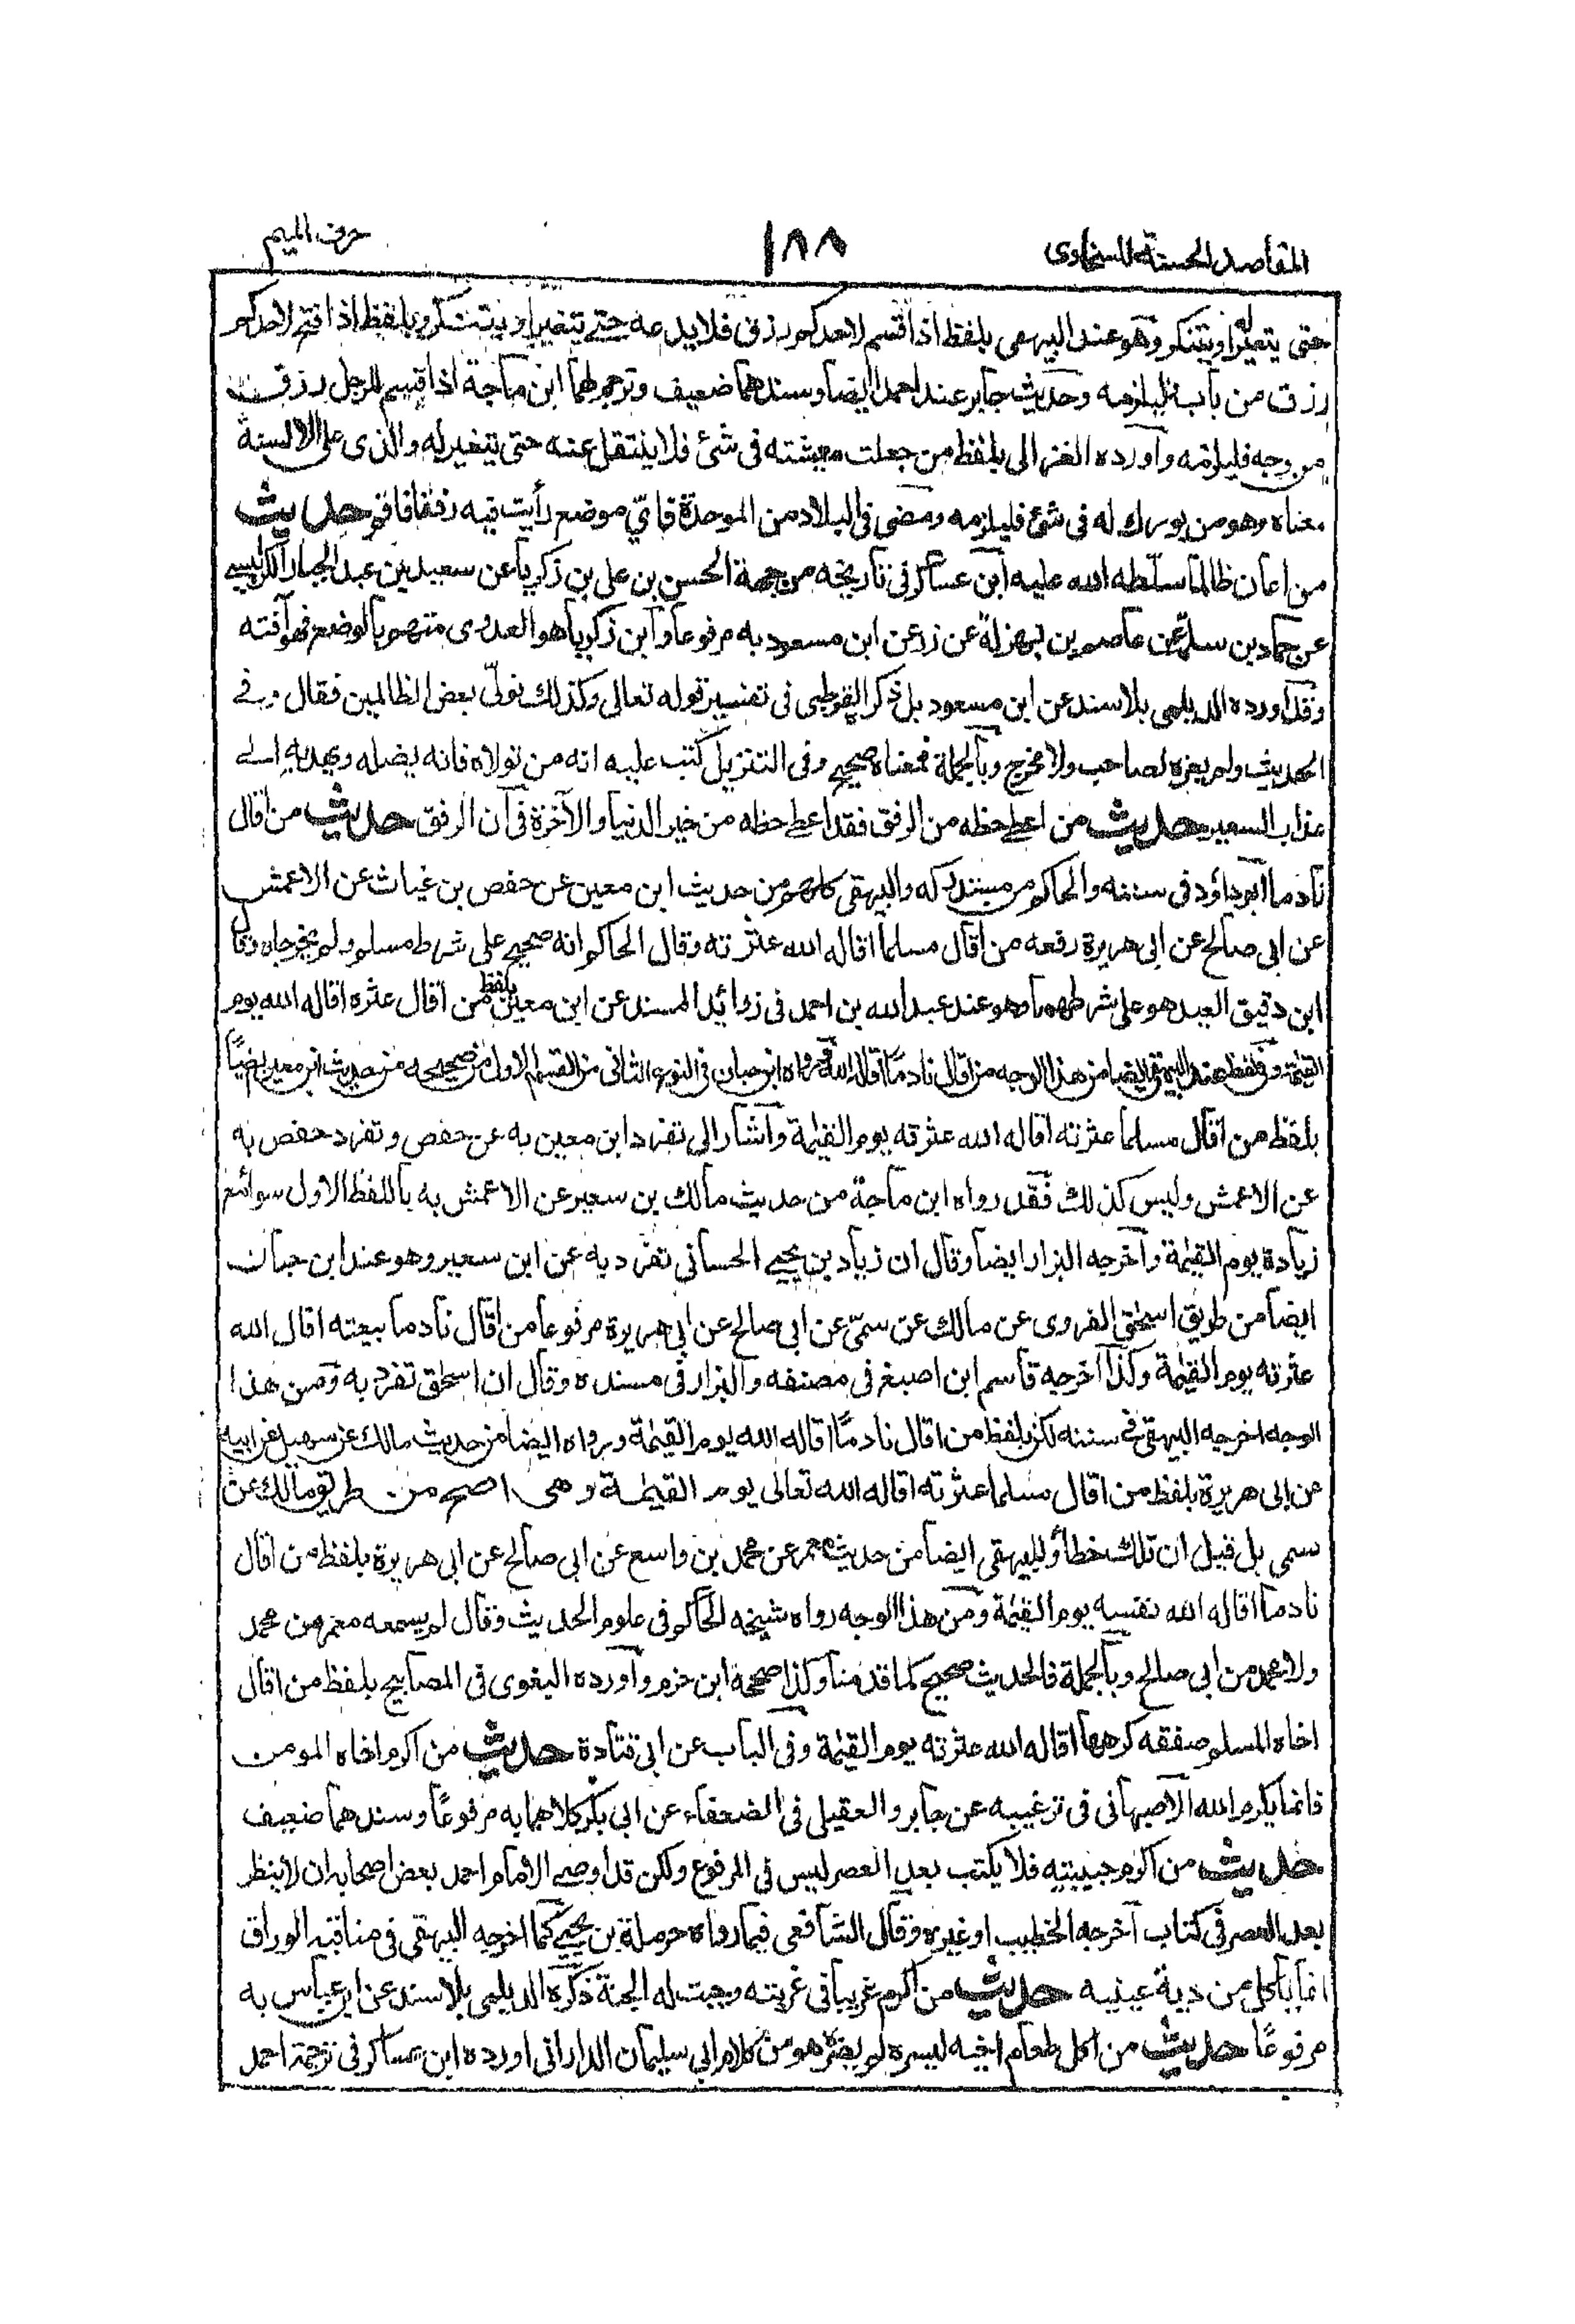 المقاصد الحسنة للسخاوى
١٨٨
حرف الميم
حتى يتغير له او يتنكر وهو عند البيهقى بلفظ اذا قسم لاحدكم رزق فلا يدعه حتى يتغير او يتنكر وبلفظ اذا فتح لاحدكم
رزق من باب فليلزمه وحديث جابر عند احمد ايضا وسندهما ضعيف وترجم لهما ابن ماجة اذا قسم للرجل رزق
من وجه فليلزمه واورده الغزالى بلفظ من جعلت معيشته فى شئ فلا ينتقل عنه حتى يتغير له والذى على الالسنة
معناه وهو من بورك له فى شئ فليلزمه ومضى فى البلاد من الموحدة فاىّ موضع رأيت فيه رفقا فاقم حديث
من اعان ظالما سلّطه الله عليه ابن عساكر فى تاريخه من جهة الحسن بن على بن زكريا عن سعيد بن عبد الجبار الكرابيسى
عن حماد بن سلمة عن عاصم بن بهدلة عن زر عن ابن مسعود به مرفوعا وابن زكريا هو العدوى متهم بالوضع فهو آفته
وقد اورده الديلمى بلا سند عن ابن مسعود بل ذكر القرطبى فى تفسير قوله تعالى وكذلك نولّى بعض الظالمين فقال وفى
الحديث ولم يعزه لصاحب ولا مخرج وبالجملة فمعناه صحيح وفى التنزيل كتب عليه انه من تولاه فانه يضله ويهديه الى
عذاب السعير حديث من اعطى حظه من الرفق فقد اعطى حظه من خير الدنيا والآخرة فى ان الرفق حديث من اقال
نادما ابو داؤد فى سننه والحاكم من مستدركه والبيهقى كلهم من حديث ابن معين عن حفص بن غياث عن الاعمش
عن ابى صالح عن ابى هريرة رفعه من اقال مسلما اقاله الله عثرته وقال الحاكم انه صحيح على شرط مسلم ولم يخرجاه وقال
ابن دقيق العيد هو على شرطهما وهو عند عبد الله بن احمد فى زوائد المسند عن ابن معين بلفظ من اقال عثره اقاله الله يوم
القيٰمة وفى لفظ عند البيهقى ايضا من هذا الوجه من اقال نادمًا اقاله الله ورواه ابن حبان فى النوع الثانى من القسم الاول من صحيحه من حديث ابن معين ايضًا
بلفظ من اقال مسلما عثرته اقاله الله عثرته يوم القيٰمة واشار الى تفرد ابن معين به عن حفص وتفرد حفص به
عن الاعمش وليس كذلك فقد رواه ابن ماجة من حديث مالك بن سعير عن الاعمش به باللفظ الاول سوائ مع
زيادة يوم القيٰمة واخرجه البزار ايضا وقال ان زياد بن يحيى الحسانى تفرد به عن ابن سعير وهو عند ابن حبان
ايضا من طريق اسحٰق الفروى عن مالك عن سمىّ عن ابى صالح عن ابى هريرة مرفوعا من اقال نادما بيعته اقال الله
عثرته يوم القيٰمة وكذا اخرجه قاسم ابن اصبغ فى مصنفه والبزار فى مسنده وقال ان اسحٰق تفرد به ومن هذا
الوجه اخرجه البيهقى فى سننه لكن بلفظ من اقال نادمًا اقاله الله يوم القيٰمة ورواه ايضا من حديث مالك عن سهيل عن ابيه
عن ابى هريرة بلفظ من اقال مسلما عثرته اقاله الله تعالى يوم القيٰمة وهى اصح من طريق مالك عن
سمى بل قيل ان تلك خطأ وللبيهقى ايضا من حديث معمر عن محمد بن واسع عن ابى صالح عن ابى هريرة بلفظ من اقال
نادما اقاله الله نفسه يوم القيٰمة ومن هذا الوجه رواه شيخه الحاكم فى علوم الحديث وقال لم يسمعه معمر من محمد
ولا محمد من ابى صالح وبالجملة فالحديث صحيح كما قدمنا وكذا صححه ابن حزم واورده البغوى فى المصابيح بلفظ من اقال
اخاه المسلم صفقه كرهها اقاله الله عثرته يوم القيٰمة وفى الباب عن ابى قتادة حديث من اكرم اخاه المومن
فانما يكرم الله الاصبهانى فى ترغيبه عن جابر والعقيلى فى الضعفاء عن ابى بكر كلاهما به مرفوعًا وسندهما ضعيف
حديث من اكرم حبيبتيه فلا يكتب بعد العصر ليس فى المرفوع ولكن قد اوصى الامام احمد بعض اصحابه ان لا ينظر
بعد العصر فى كتاب اخرجه الخطيب او غيره وقال الشافعى فيما رواه حرملة بن يحيى كما اخرجه البيهقى فى مناقبه الوراق
انما يأكل من دية عينيه حديث من اكرم غريبا فى غربته وجبت له الجنة ذكره الديلمى بلا سند عن ابن عباس به
مرفوعًا حديث من اكل طعام اخيه ليسره لم يضره هو من كلام ابى سليمان الدارانى اورده ابن عساكر فى ترجمة احمد